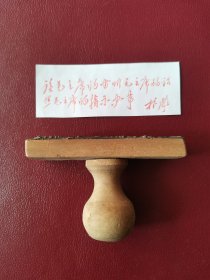 读毛主席的书听毛主席的话
照毛主席的指示办事 林彪